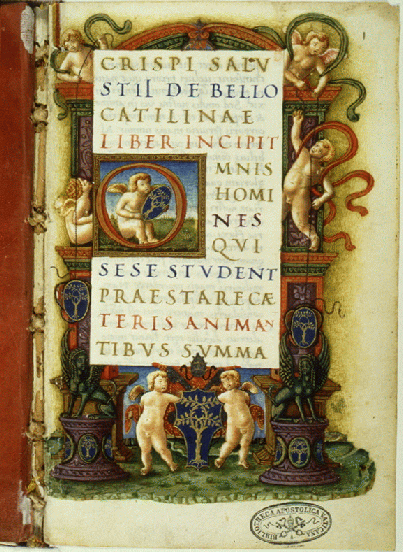 CRISPI SALV
STII DE BELLO
CATILINAE
LIBER INCIPIT
OMNIS
HOMI
NES
QVI
SESE STVDENT
PRAESTARE CÆ
TERIS ANIMAN
TIBVS SVMMA
BIBLIOTHECA APOSTOLICA VATICANA